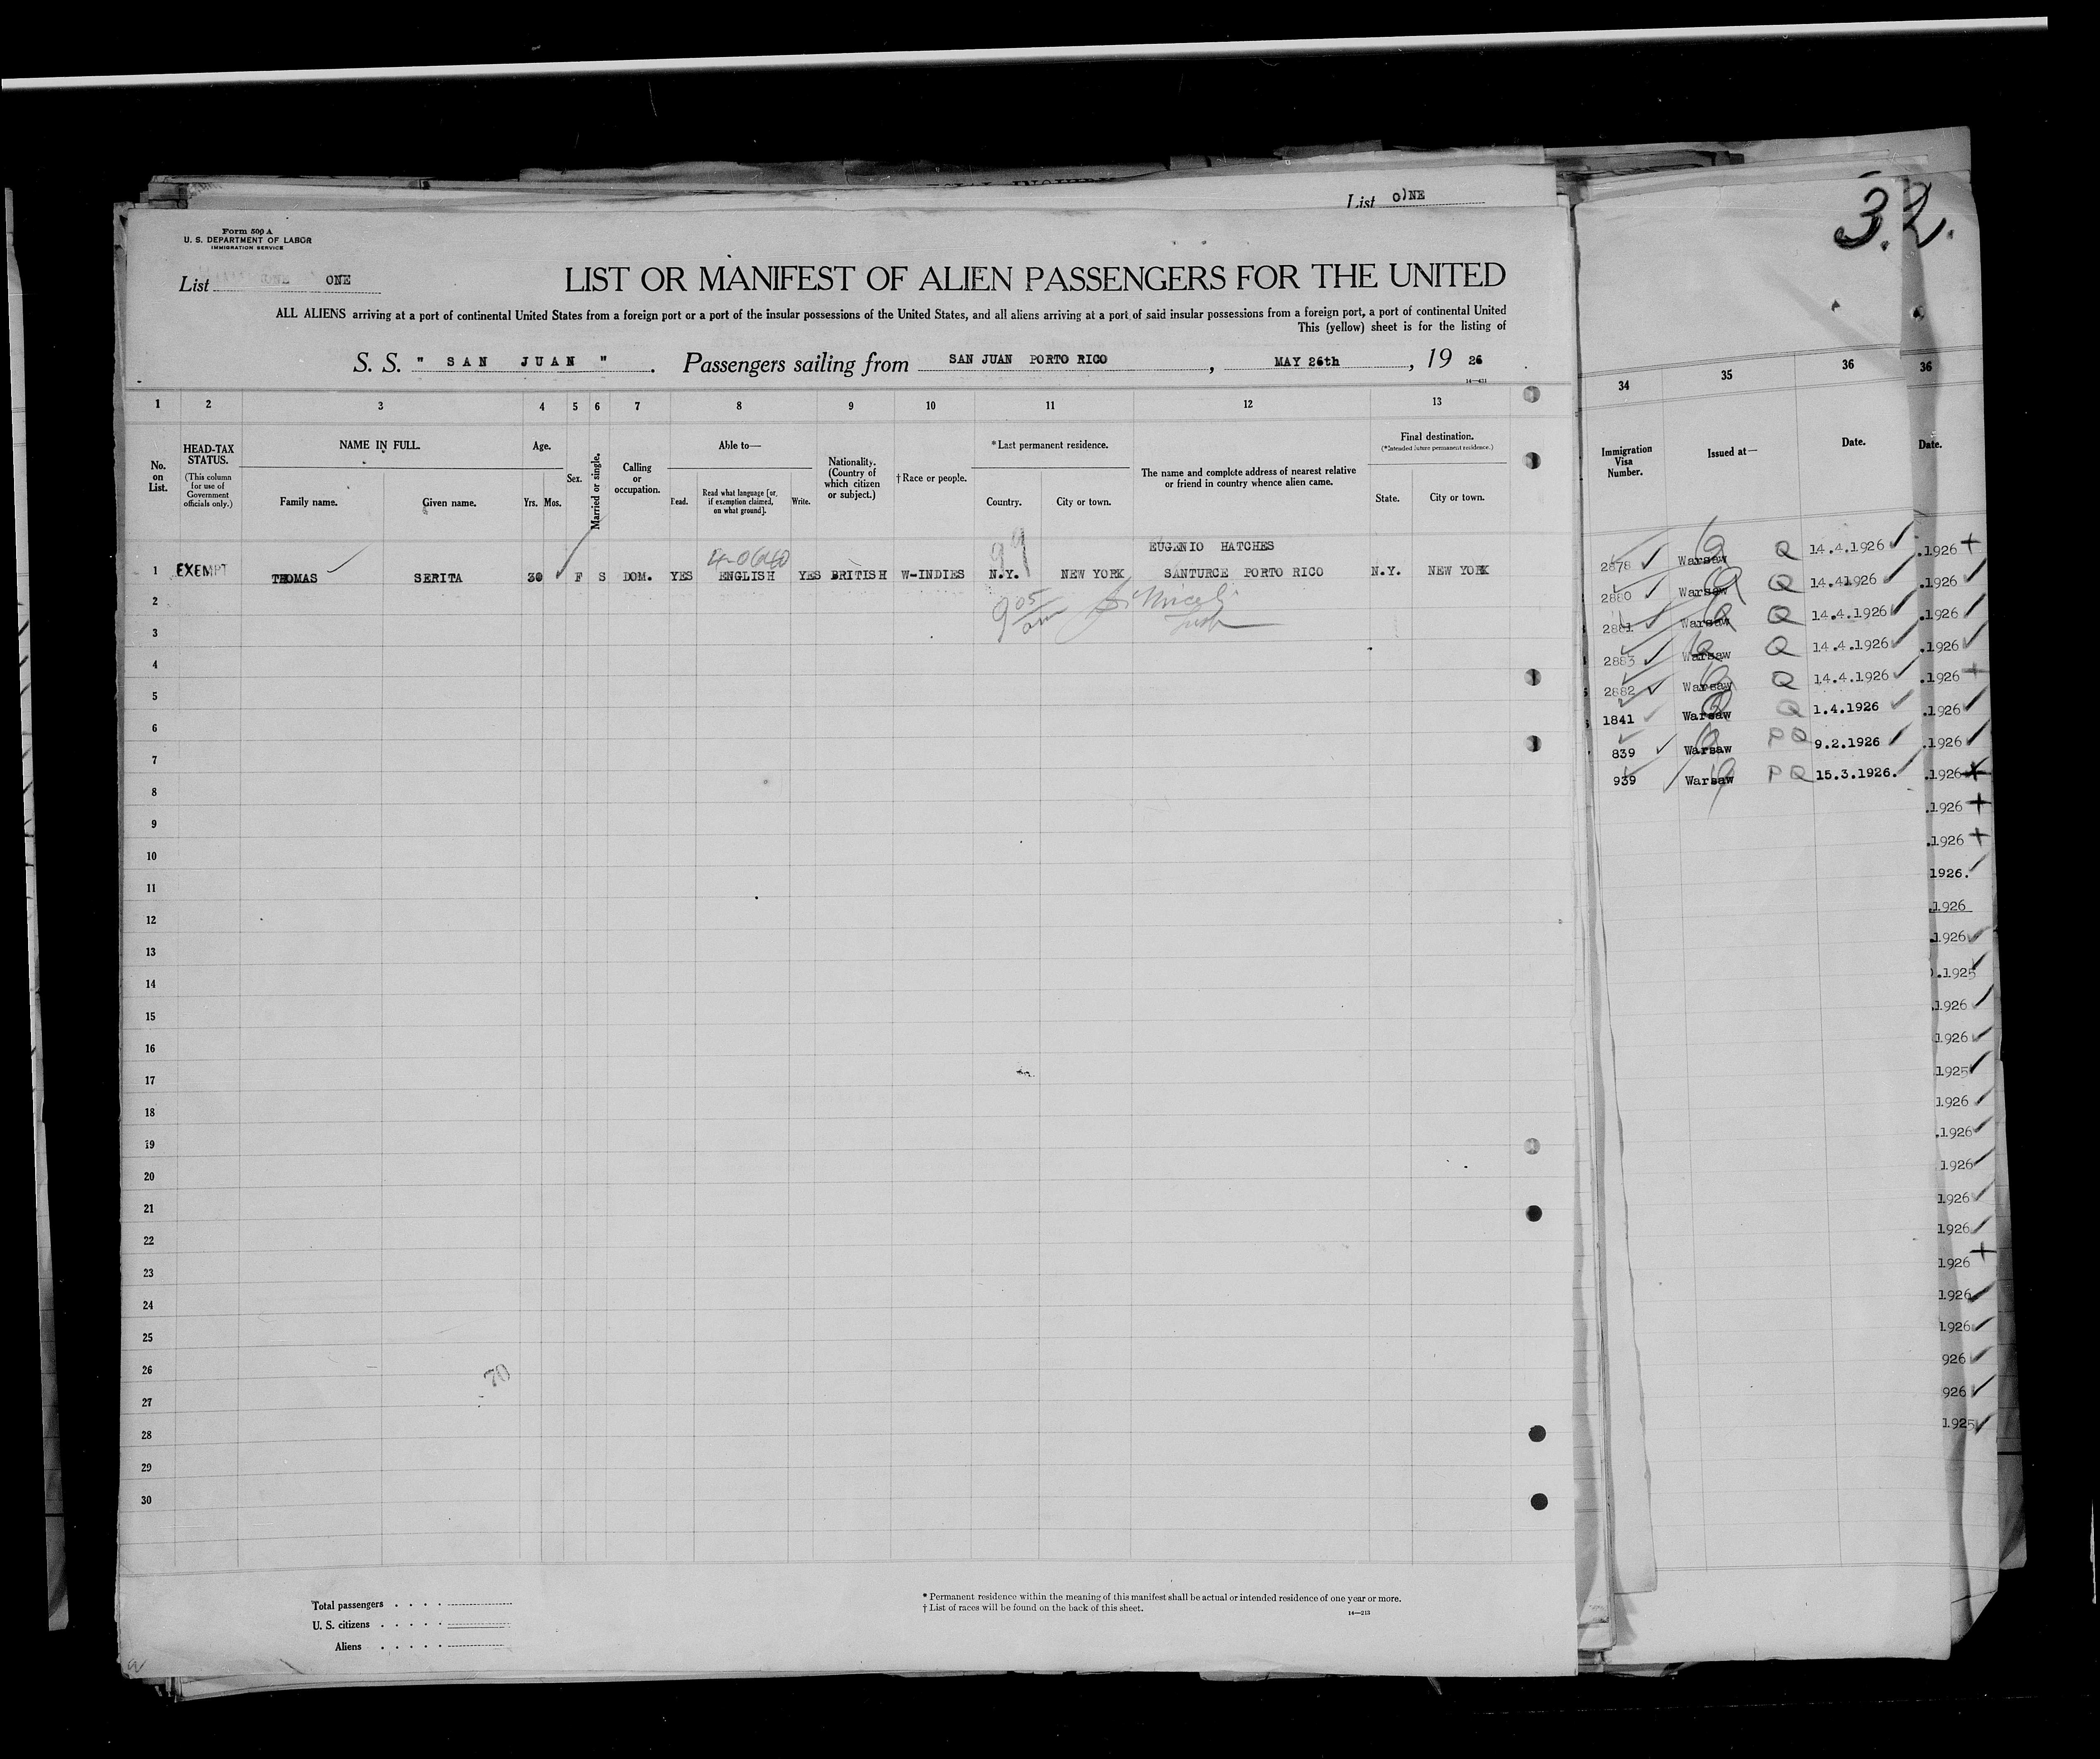 List O)NE
32.
Form 500 A
U. S. DEPARTMENT OF LABOR
IMMIGRATION SERVICE
List ONE
LIST OR MANIFEST OF ALIEN PASSENGERS FOR THE UNITED
ALL ALIENS arriving at a port of continental United States from a foreign port or a port of the insular possessions of the United States, and all aliens arriving at a port of said insular possessions from a foreign port, a port of continental United
This (yellow) sheet is for the listing of
S. S. " SAN JUAN ". Passengers sailing from SAN JUAN PORTO RICO, MAY 26th, 19 26
14—431
1 2 3 4 5 6 7 8 9 10 11 12 13
No. on List.
HEAD-TAX STATUS.
(This column for use of Government officials only.)
NAME IN FULL.
Family name. Given name.
Age.
Yrs. Mos.
Sex.
Married or single.
Calling or occupation.
Able to—
Read. Read what language [or, if exemption claimed, on what ground]. Write.
Nationality. (Country of which citizen or subject.)
†Race or people.
*Last permanent residence.
Country. City or town.
The name and complete address of nearest relative or friend in country whence alien came.
Final destination.
(*Intended future permanent residence.)
State. City or town.
EUGENIO HATCHES
1 EXEMPT THOMAS SERITA 30 F S DOM. YES ENGLISH YES BRITISH W-INDIES N.Y. NEW YORK SANTURCE PORTO RICO N.Y. NEW YORK
99
905
2
3
4
5
6
7
8
9
10
11
12
13
14
15
16
17
18
19
20
21
22
23
24
25
26
27
28
29
30
70
Total passengers . . . .
U. S. citizens . . . . .
Aliens . . . . .
* Permanent residence within the meaning of this manifest shall be actual or intended residence of one year or more.
† List of races will be found on the back of this sheet.
14—213
34 35 36 36
Immigration Visa Number. Issued at— Date. Date.
2878 Warsaw Q 14.4.1926 .1926
2880 Warsaw Q 14.41926 .1926
2881 Warsaw Q 14.4.1926 .1926
2883 Warsaw Q 14.4.1926 .1926
2882 Warsaw Q 14.4.1926 .1926
1841 Warsaw Q 1.4.1926 .1926
839 Warsaw PQ 9.2.1926 .1926
939 Warsaw PQ 15.3.1926. .1926
.1926
.1926
1926.
.1926
.1926
.1925
.1926
1926
1925
1926
.1926
1926
1926
1926
1926
1926
1926
926
926
1925